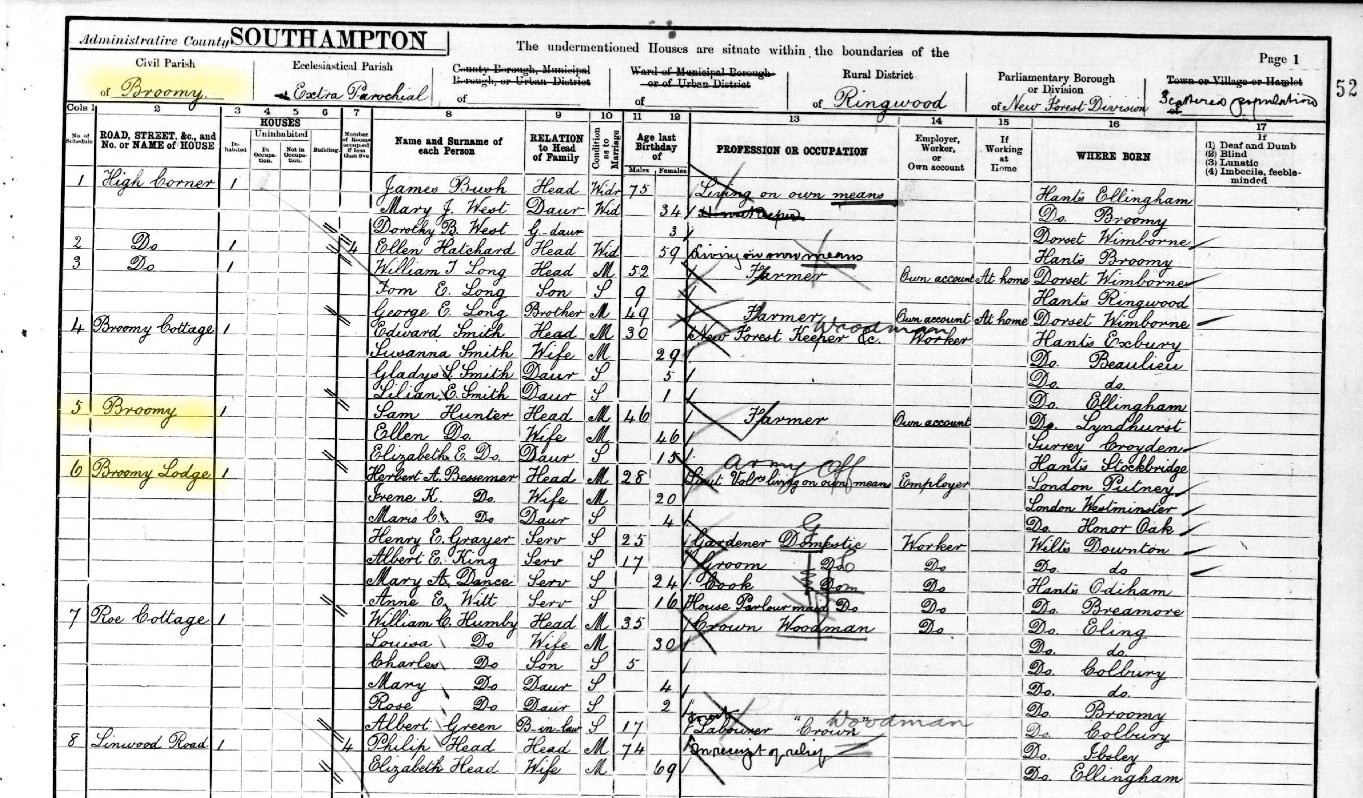 Administrative County SOUTHAMPTON
The undermentioned Houses are situate within the boundaries of the
Page 1
52
Civil Parish of Broomy.
Ecclesiastical Parish Extra Parochial
County Borough, Municipal Borough, or Urban District of
Ward of Municipal Borough or of Urban District of
Rural District of Ringwood
Parliamentary Borough or Division of New Forest Division
Town or Village or Hamlet of Scattered population
Cols 1 2 3 4 5 6 7 8 9 10 11 12 13 14 15 16 17
No. of Schedule
ROAD, STREET, &c., and No. or NAME of HOUSE
HOUSES
Inhabited
Uninhabited
In Occupation.
Not in Occupation.
Building.
Number of Rooms occupied if less than five
Name and Surname of each Person
RELATION to Head of Family
Condition as to Marriage
Age last Birthday of
Males Females
PROFESSION OR OCCUPATION
Employer, Worker, or Own account
If Working at Home
WHERE BORN
If (1) Deaf and Dumb (2) Blind (3) Lunatic (4) Imbecile, feeble-minded
1 High Corner 1 James Bush Head Widr 75 Living on own means Hants Ellingham
Mary J. West Daur Wid 34 Do. Broomy
Dorothy B. West G-daur 3 Dorset Wimborne
2 Do 1 4 Ellen Hatchard Head Wid 59 Living on own means Hants Broomy
3 Do 1 William T. Long Head M 52 Farmer Own account At home Dorset Wimborne
Tom E. Long Son S 9 Hants Ringwood
George E. Long Brother M 49 Farmer Own account At home Dorset Wimborne
4 Broomy Cottage 1 Edward Smith Head M 30 New Forest Keeper &c. Woodman Worker Hants Exbury
Susanna Smith Wife M 29 Do. Beaulieu
Gladys S. Smith Daur S 5 Do. do.
Lilian E. Smith Daur S 1 Do. Ellingham
5 Broomy 1 Sam Hunter Head M 46 Farmer Own account Do. Lyndhurst
Ellen Do. Wife M 46 Surrey Croyden
Elizabeth E. Do. Daur S 15 Hants Stockbridge
6 Broomy Lodge 1 Herbert A. Bessemer Head M 28 Army Off Lieut Volrs living on own means Employer London Putney
Irene K. Do Wife M 20 London Westminster
Maris C. Do Daur S 4 Do. Honor Oak
Henry E. Grayer Serv S 25 Gardener Domestic G Worker Wilts Downton
Albert E. King Serv S 17 Groom Do Do Do. do
Mary A. Dance Serv S 24 Cook Dom Do Hants Odiham
Anne E. Witt Serv S 16 House Parlourmaid Do Do Do. Breamore
7 Roe Cottage 1 William C. Humby Head M 35 Crown Woodman Do Do. Eling
Louisa Do Wife M 30 Do. do.
Charles Do Son S 5 Do. Colbury
Mary Do Daur S 4 Do. do.
Rose Do Daur S 2 Do. Broomy
Albert Green B-in-law S 17 Labourer "Crown" Woodman Do. Colbury
8 Linwood Road 1 4 Philip Head Head M 74 In receipt of relief Do. Ibsley
Elizabeth Head Wife M 69 Do. Ellingham